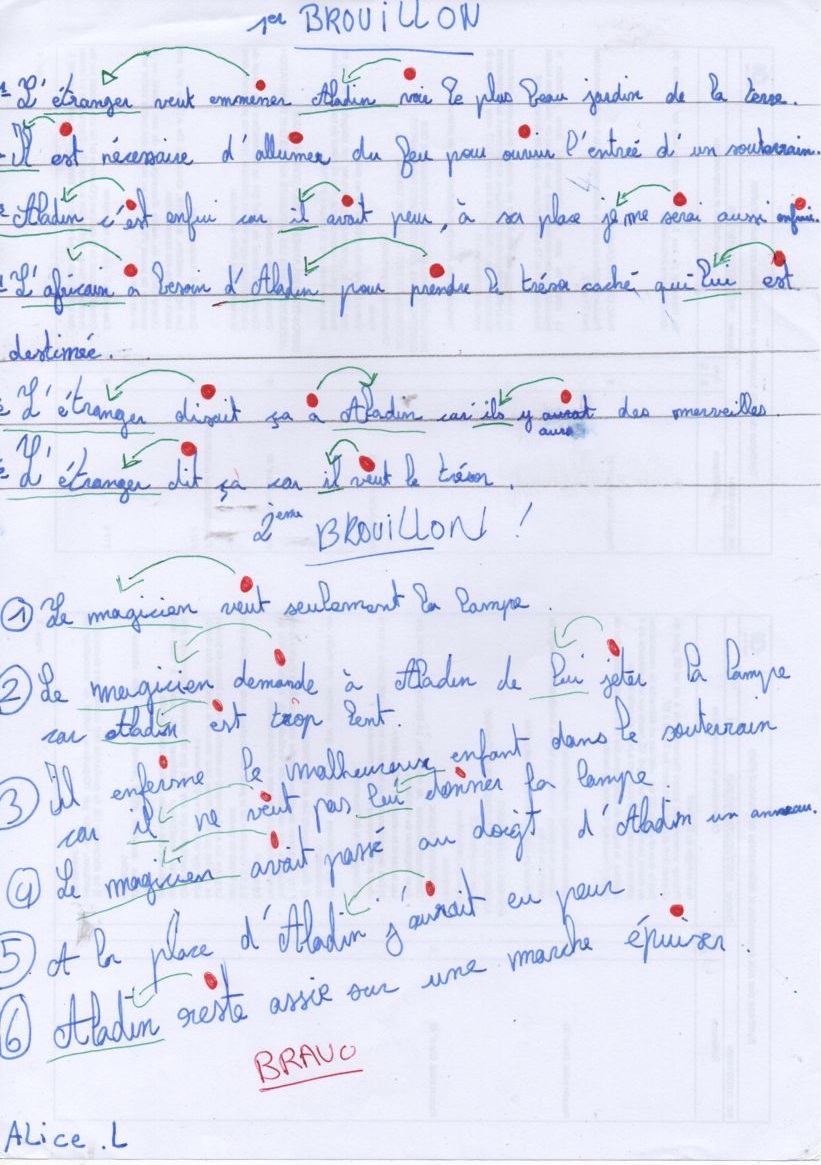 1er BROUILLON
L'étranger veut emmener Aladin voie le plus beau jardin de la terre.
Il est nécessaire d'allumer du feu pour ouvrir l'entreé d'un souterrain.
Aladin c'est enfui car il avait peur, à sa place je me serai aussi enfui.
L'africain a besoin d'Aladin pour prendre le trésor caché qui lui est
destinée.
L'étranger disait ça à Aladin car ils y aurat des merveilles.
aura
L'étranger dit ça car il veut le trésor.
2ème BROUILLON !
1 Le magicien veut seulement la lampe.
2 Le magicien demande à Aladin de lui jeter la lampe
car Aladin est trop lent.
3 Il enferme le malheureux enfant dans le souterrain
car il ne veut pas lui donner la lampe.
4 Le magicien avait passé au doigt d'Aladin un anneau.
5 A la place d'Aladin j'aurait eu peur
6 Aladin reste assie sur une marche épuiser.
BRAVO
ALice.L